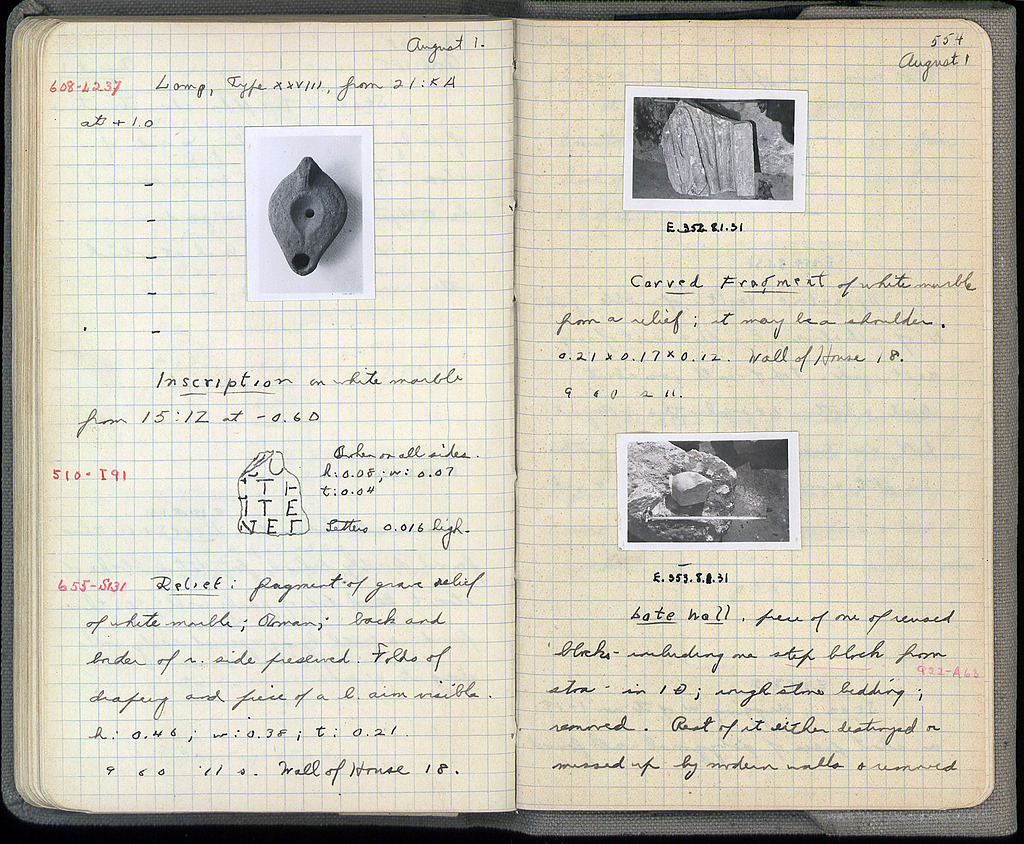 August 1.
608-L237 Lamp, Type XXVIII, from 21:KA
at +1.0
Inscription on white marble
from 15:IZ at -0.60
Broken on all sides.
510-I91
h: 0.08; w: 0.07
t: 0.04
T Γ
I T E
N E Γ
Letters 0.016 high.
655-S131 Relief: fragment of grave relief
of white marble; Roman; back and
border of r. side preserved. Folds of
drapery and piece of a l. arm visible.
h: 0.46; w: 0.38; t: 0.21
Wall of House 18.
554
August 1
E.352.8.1.31
Carved Fragment of white marble
from a relief; it may be a shoulder.
0.21 x 0.17 x 0.12. Wall of House 18.
E.353.8.1.31
Late Wall. piece of one of reused
blocks - including one step block from
922-A63
stoa - in 1Θ; rough stone bedding;
removed. Rest of it either destroyed or
messed up by modern walls & removed